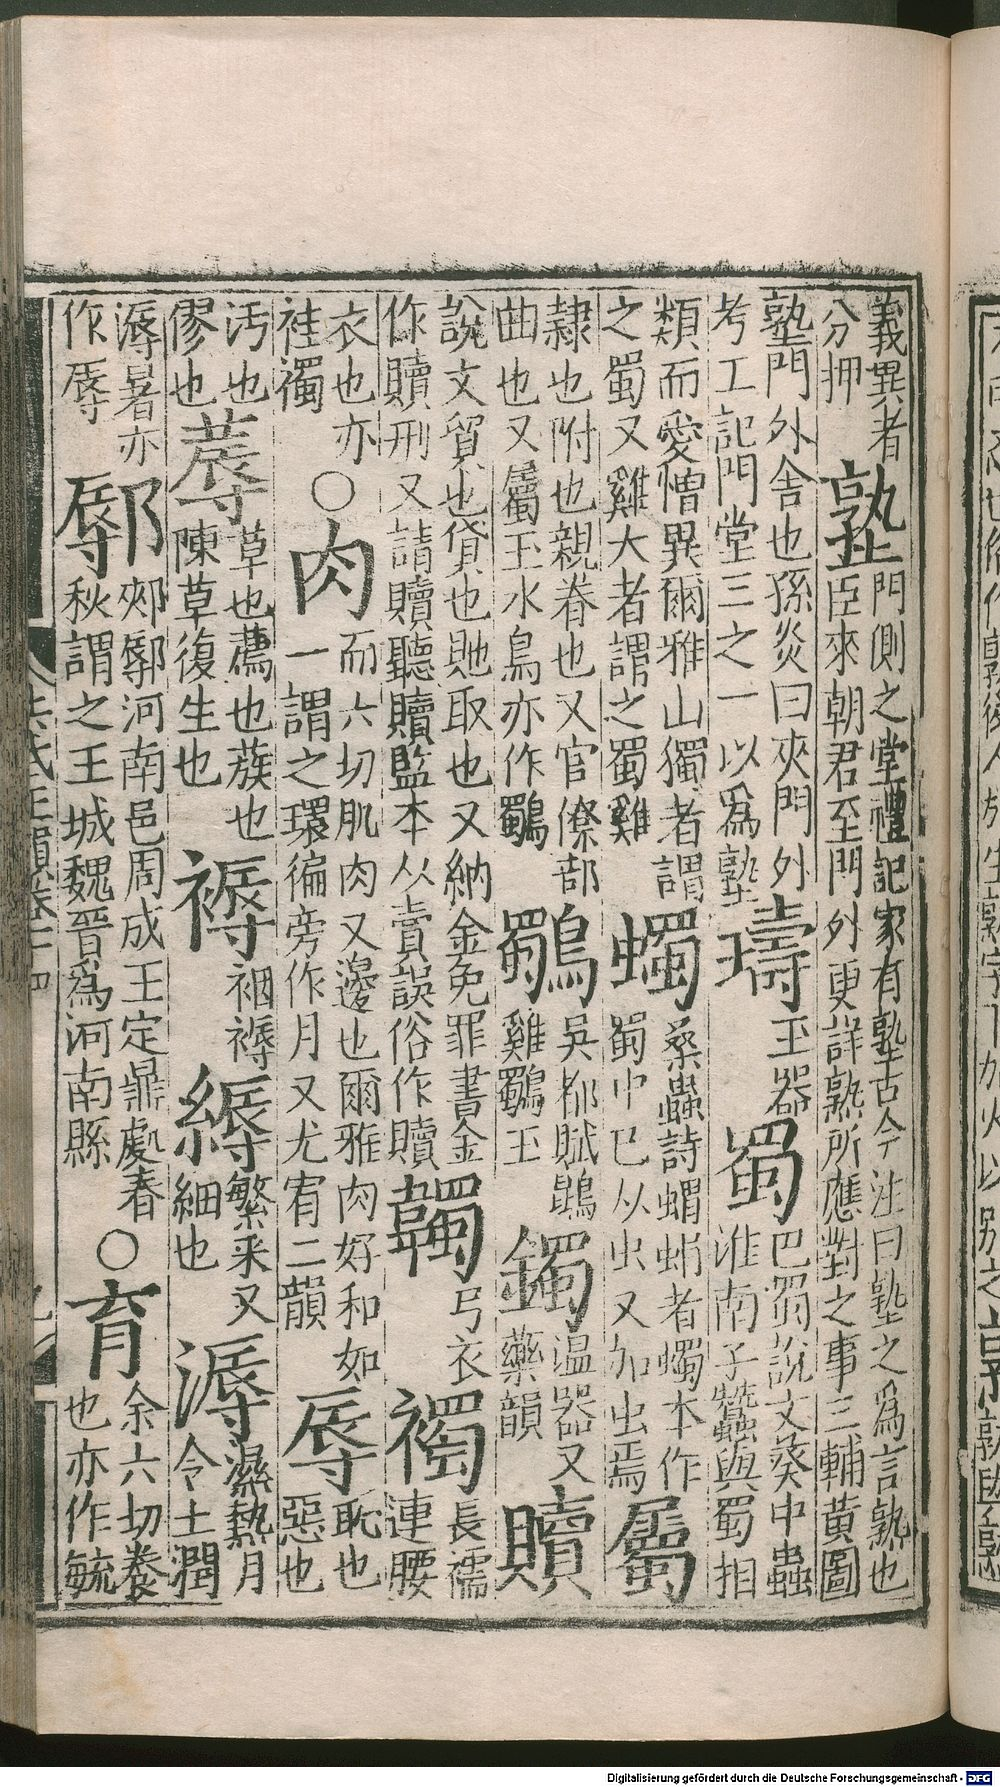 義異者分押塾門側之堂禮記家有塾古今注曰塾之為言熟也臣來朝君至門外更詳熟所應對之事三輔黃圖
塾門外舍也孫炎曰夾門外考工記門堂三之一以爲塾璹玉器蜀巴蜀說文葵中蟲淮南子蠶與蜀相
類而愛憎異爾雅山獨者謂之蜀又雞大者謂之蜀雞蠋桑蟲詩蜎蜎者蠋本作蜀巾已从虫又加虫焉屬
隷也附也親眷也又官僚部曲也又屬玉水鳥亦作鸀鸀吳都賦鵾雞鸀玉鐲温器又藥韻贖
說文貿也貸也貤取也又納金免罪書金作贖刑又請贖聽贖監本从賣誤俗作贖韣弓衣襡長襦連腰
衣也亦袿襡○肉而六切肌肉又邊也爾雅肉好和如一謂之環徧旁作月又尤宥二韻辱恥也惡也
汚也僇也蓐草也薦也蔟也陳草復生也褥裀褥縟繁采又細也溽濕熱月令土潤
溽暑亦作辱鄏郟鄏河南邑周成王定鼎處春秋謂之王城魏晉爲河南縣○育余六切養也亦作毓
Digitalisierung gefördert durch die Deutsche Forschungsgemeinschaft - DFG